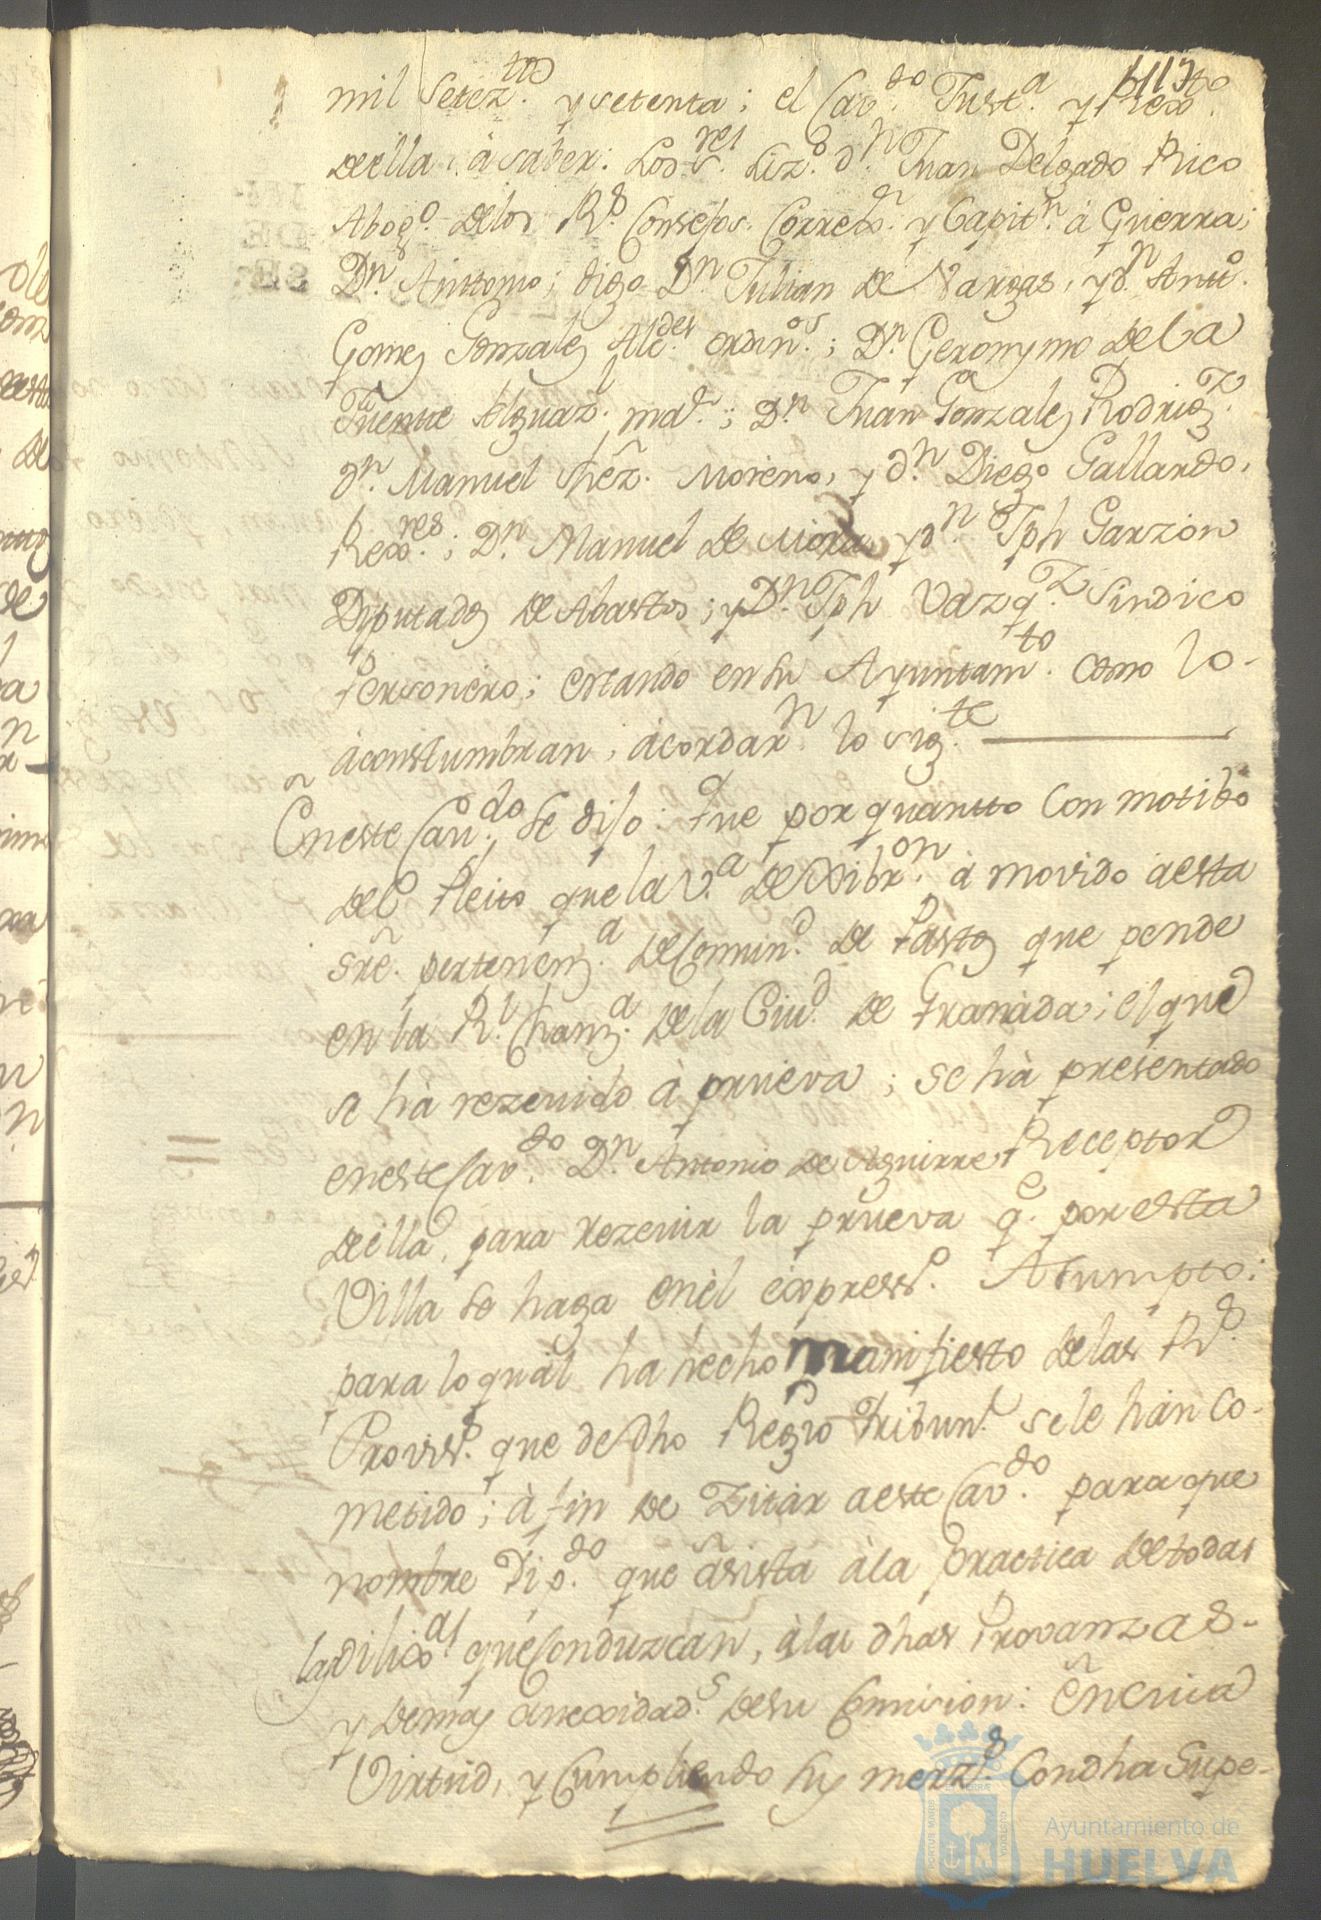 117
mil Setez.tos y setenta; el Cav.do Just.a y Rex.to
de ella. à saver: Los S.res Liz.do d.n Juan Delgado Rico
Abog.o delos R.s Consejos Correx.r y Capit.n à Guerra;
D.n Antonio; digo D.n Julian de Vargas, y d.n Anto.
Gomez Gonzalez Alc.des ordin.os; D.n Geronymo dela
Fuente Alguaz.l ma.r; D.n Juan Gonzalez Rodrig.z
d.n Manuel Shez. Moreno, y d.n Diego Gallardo,
Rex.res; D.n Manuel de Mora y d.n Jph Garzon
Diputados de Abastos; y D.n Jph Vazq.z Sindico
Personero; estando en su Ayuntam.to como lo-
acostumbran, acordar.n lo sig.te
En este Cav.do se dijo: Que por quantto Con motibo
del Pleito que la V.a de Xibr.on à movido a esta
sre. pertenenz.a de Comun.d de Pastos que pende
en la R.l Chanz.a de la Ciu.d de Granada; el que
se hà rezevido à prueva; se hà presentado
en este Cav.do D.n Antonio de Aguirre Receptor
de ella, para rezevir la prueva q.e por esta
Villa se haga en èl express.o Asumpto;
para lo quàl ha hecho manifiesto delas R.s
Provis.s que de dho Regio Tribun.l se le hàn Co-
metido; à fin de Zitàr a este Cav.do para que
nombre Dip.do que asista àla practica de todas
las dilix.as que Conduzcan, àlas dhas Provanzas-
y demas anexidad.s de su Comision: En cuia
Virtud, y Cumpliendo sus merz.s Con dha Supe-
Ayuntamiento de
HUELVA